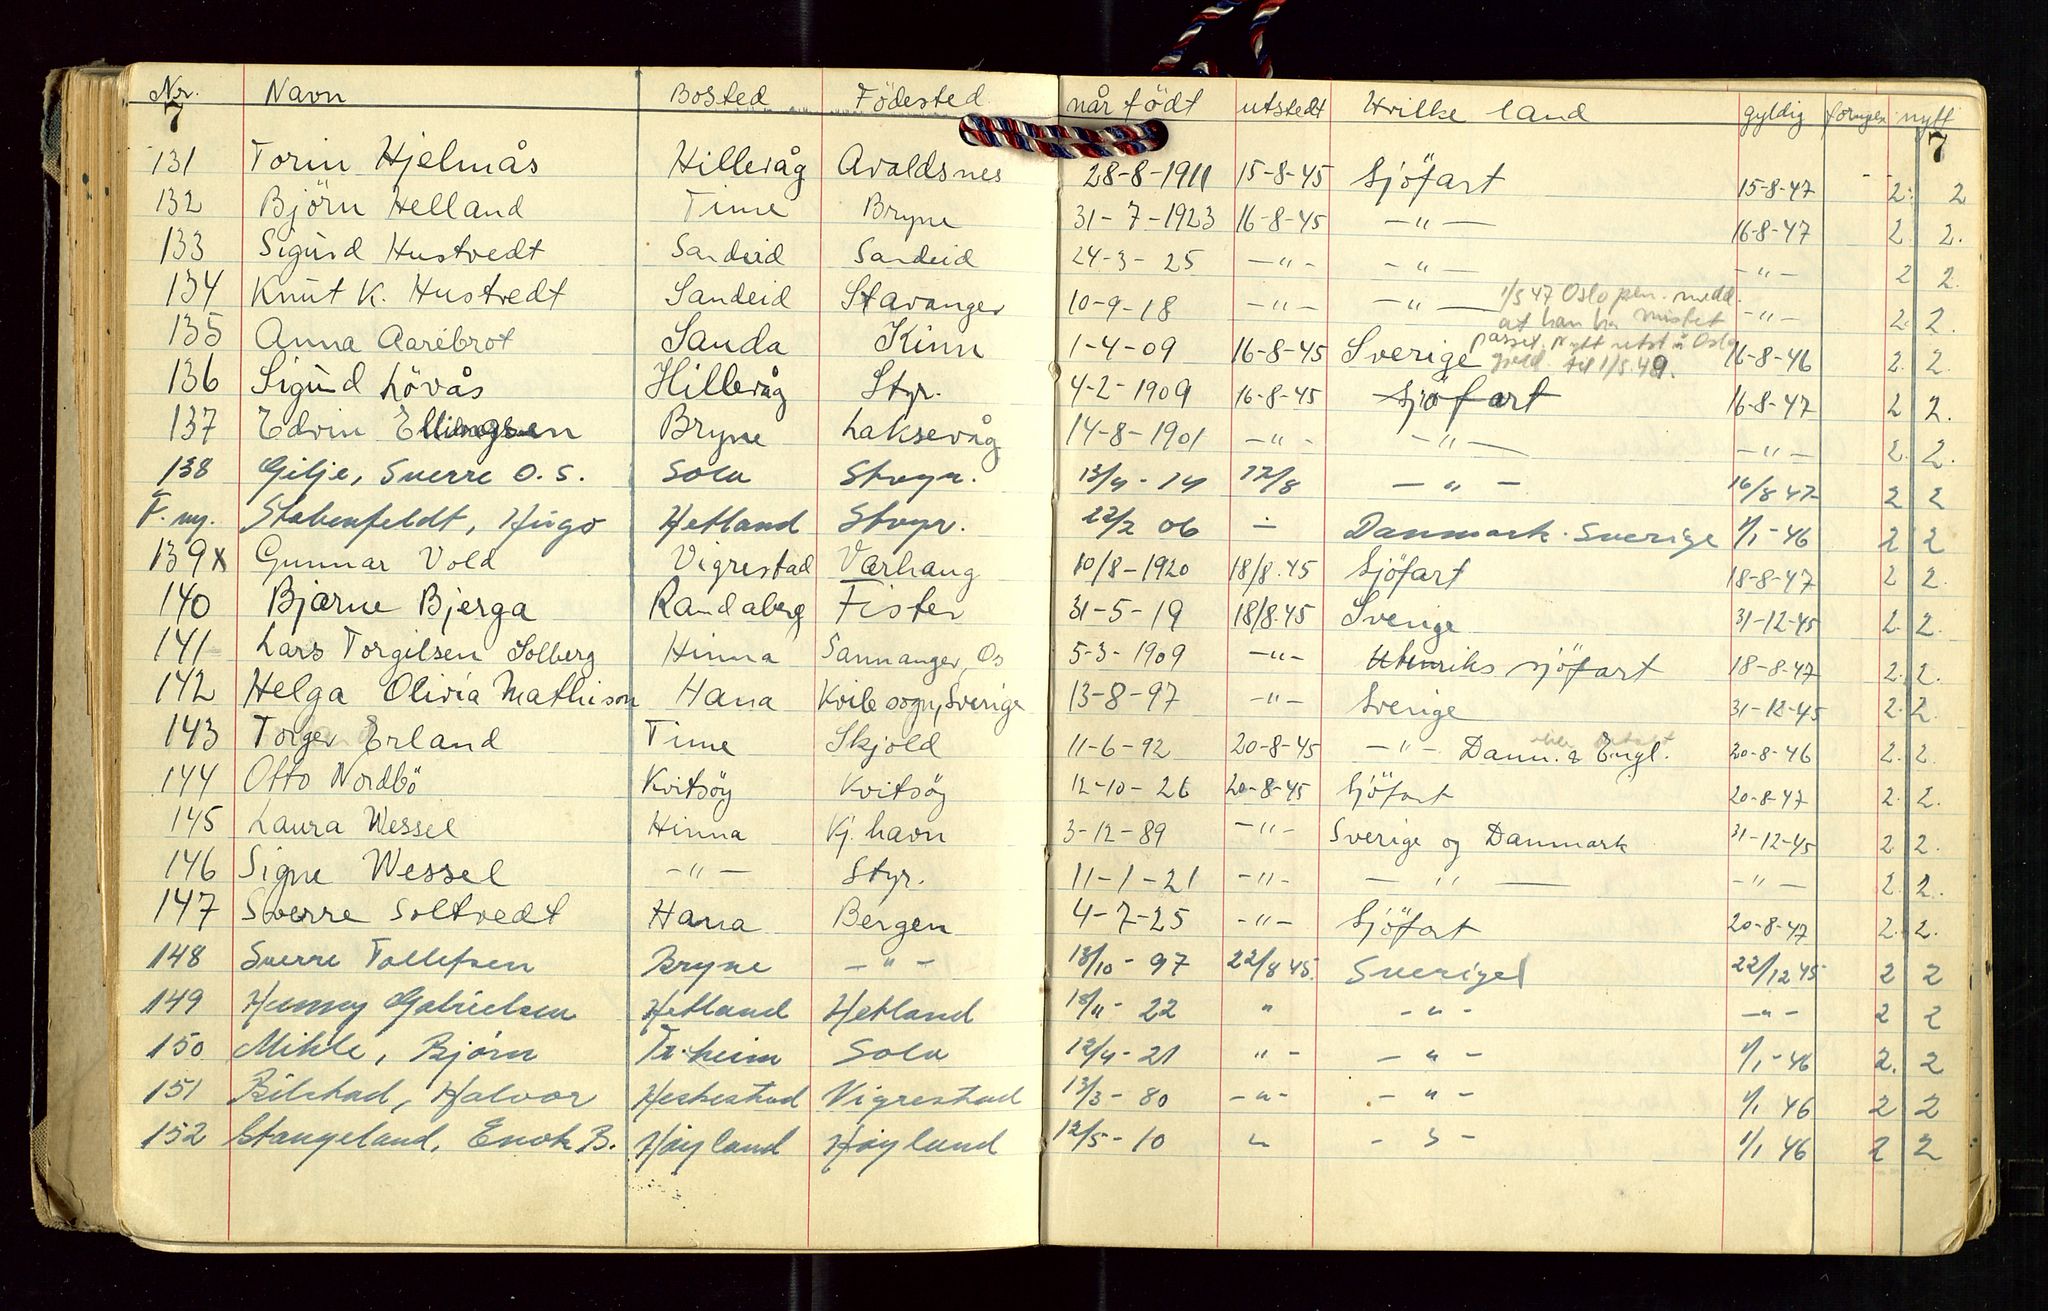 Nr. Navn Bosted Födested når födt utstedt Hvilke land gyldig fornyet nytt
7 7
131 Torin Hjelmås Hillevåg Avaldsnes 28-8-1911 15-8-45 Sjöfart 15-8-47 2. 2
132 Björn Helland Time Bryne 31-7-1923 16-8-45 -"- 16-8-47 2. 2.
133 Sigurd Hustvedt Sandeid Sandeid 24-3-25 -"- -"- -"- 2 2.
134 Knut K. Hustvedt Sandeid Stavanger 10-9-18 -"- -"- -"- 2. 2.
1/5 47 Oslo medd.
at han har mistet
passet. Nytt utst. i Oslo
gyld. til 1/5.49.
135 Anna Aarebrot Sauda Kinn 1-4-09 16-8-45 Sverige 16-8-46 2. 2.
136 Sigurd Lövås Hillevåg Stgr. 4-2-1909 16-8-45 Sjöfart 16-8-47 2 2.
137 Edvin Ellingsen Bryne Laksevåg 14-8-1901 -"- -"- -"- 2. 2.
138 Gilje, Sverre O. S. Sola Stvgr. 13/4-14 22/8 -"- 16/8 47 2 2
F. ny. Stabenfeldt, Hugo Hetland Stvgr. 22/2 06 - Danmark. Sverige 1/1-46 2 2
139x Gunnar Vold Vigrestad Varhaug 10/8-1920 18/8.45 Sjöfart 18-8-47 2 2.
140 Bjarne Bjerga Randaberg Fister 31-5-19 18/8.45 Sverige 31-12-45 2. 2.
141 Lars Torgilsen Solberg Hinna Samnanger, Os 5-3-1909 -"- Utenriks sjöfart 18-8-47 2. 2.
142 Helga Olivia Mathison Hana Kvile sogn, Sverige 13-8-97 -"- Sverige 31-12-45 2. 2.
143 Torger Erland Time Skjold 11-6-92 20-8-45 -"- Danm. & Engl. 20-8-46 2. 2.
144 Otto Nordbö Kvitsöy Kvitsöy 12-10-26 20-8-45 Sjöfart 20-8-47 2. 2.
145 Laura Wessel Hinna Kj. havn 3-12-89 -"- Sverige og Danmark 31-12-45 2 2.
146 Signe Wessel -"- Stgr. 11-1-21 -"- -"- -"- 2. 2.
147 Sverre Soltvedt Hana Bergen 4-7-25 -"- Sjöfart 20-8-47 2. 2.
148 Sverre Tollefsen Bryne -"- 18/10-97 22/8 45. Sverige 22/12 45 2 2
149 Henny Gabrielsen Hetland Hetland 18/11-22 " -"- -"- 2 2
150 Mihle, Bjørn Tr.heim Sola 12/4-21 "- -"- 1/1-46 2. 2
151 Bilstad, Halvor Heskestad Vigrestad 13/3-80 -"- -"- 1/1 46 2 2
152 Stangeland, Enok B. Høyland Høyland 12/5-10 " -"- 1/1 46 2 2